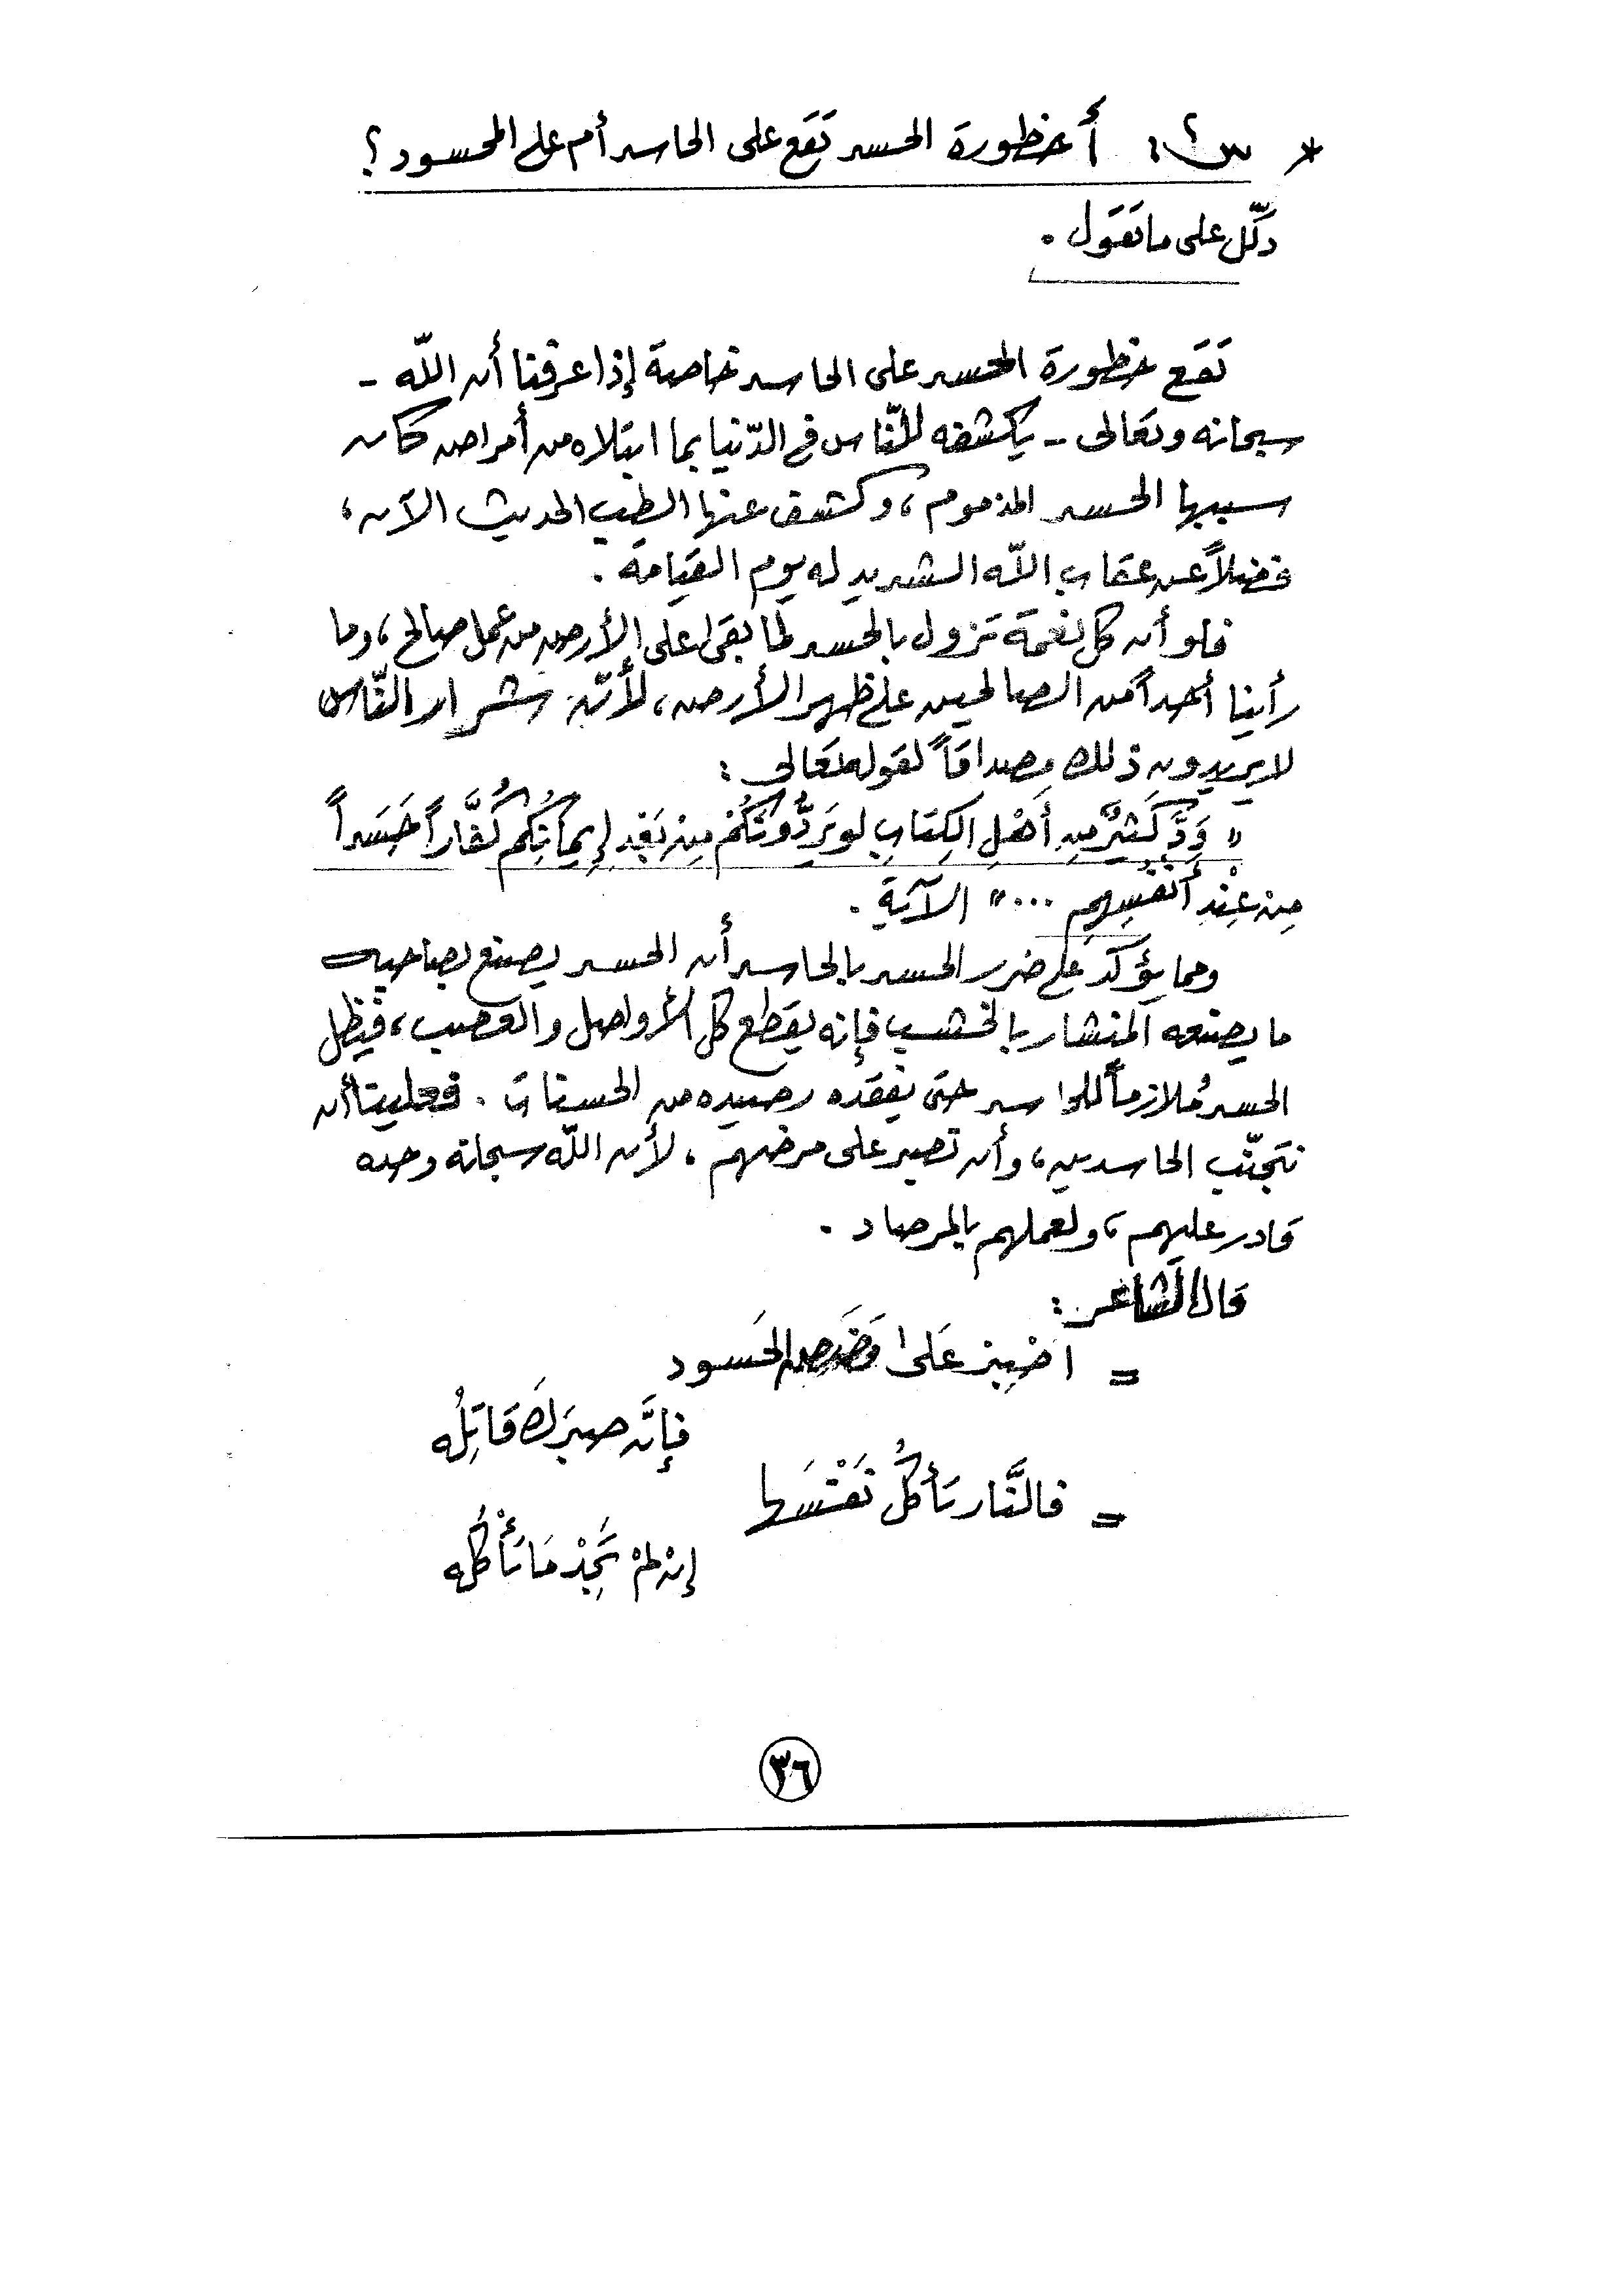 * س؟: أخطورة الحسد تقع على الحاسد أم على المحسود؟
دلّل على ما تقول.
تقع خطورة الحسد على الحاسد خاصة إذا عرفنا أن اللّه -
سبحانه وتعالى - يكشفه للنّاس في الدّنيا بما ابتلاه من أمراض كان
سببها الحسد المذموم، وكشف عنها الطب الحديث الآن،
فضلاً عن عقاب اللّه الشديد له يوم القيامة.
فلو أن كل نعمة تزول بالحسد لما بقى على الأرض من عمل صالح، وما
رأينا أحداً من الصالحين على ظهر الأرض، لأنّ شرار النّاس
لا يريدون ذلك مصداقاً لقوله تعالى:
"وَدَّ كَثيرٌ مِن أَهْلِ الكِتابِ لو يَردُّونَكُمْ مِنْ بَعْدِ إِيمَانِكُم كُفَّاراً حَسَداً
مِنْ عِنْدِ أَنْفُسِهِم ..." الآية.
ومما يؤكد على ضرر الحسد بالحاسد أن الحسد يصنع بصاحبه
ما يصنعه المنشار بالخشب فإنه يقطع كل الأواصل والعصب، فيظل
الحسد مُلازماً للحاسد حتى يفقده رصيده من الحسنات. فعلينا أن
نتجنّب الحاسدين، وأن نصبر على مرضهم، لأن اللّه سبحانه وحده
قادر عليهم، ولعملهم بالمرصاد.
قال الشاعر:
= اصْبِرْ عَلَى مَضَضِ الحَسود
فإنَّ صبرَكَ قَاتِلُه
= فالنَّار تأكلُ نَفْسَها
إنْ لمْ تَجِدْ مَا تَأْكُلُه
٣٦